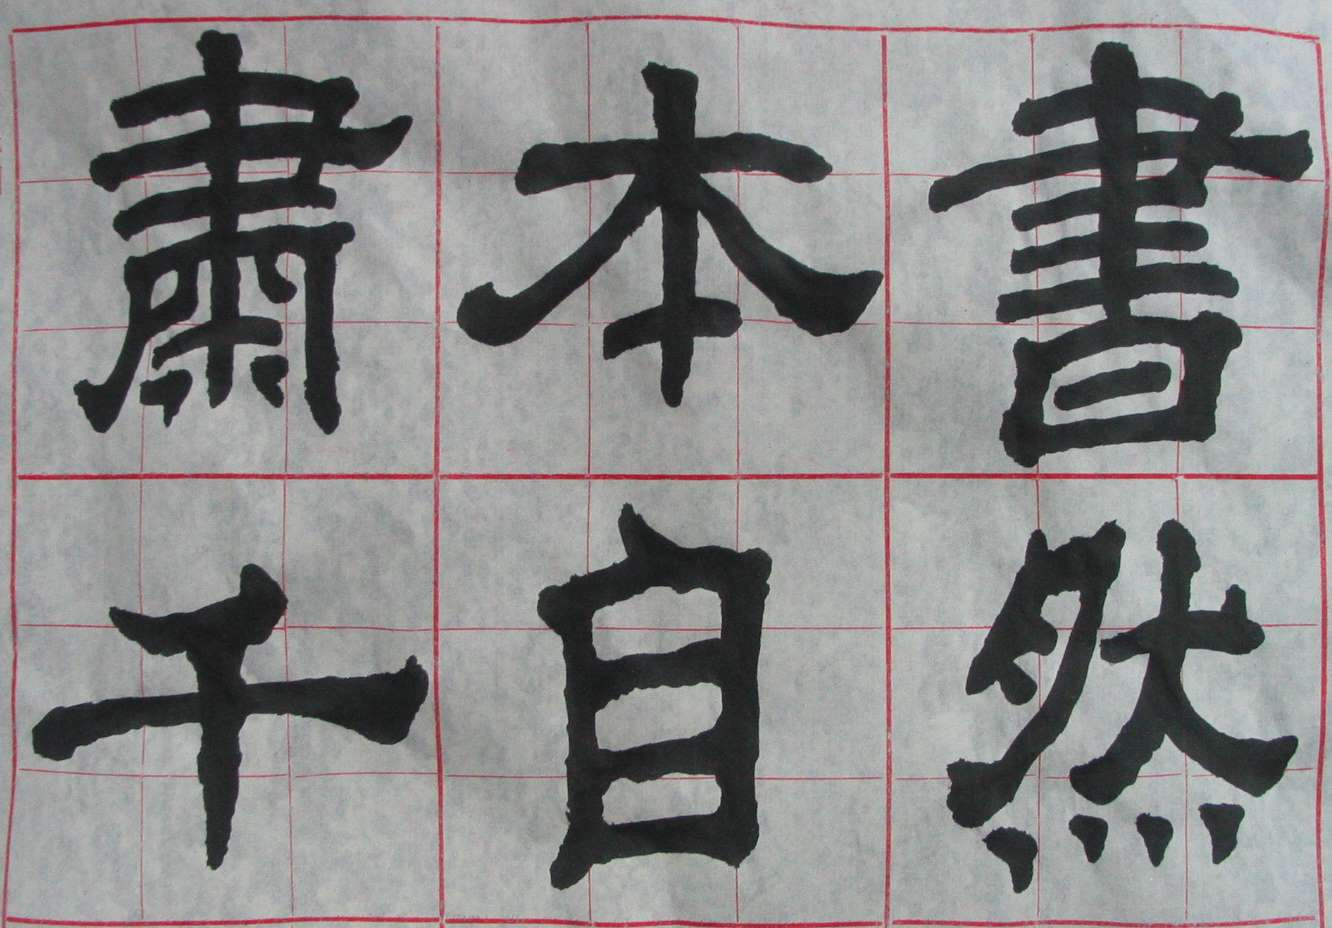 書然
本自
肅千